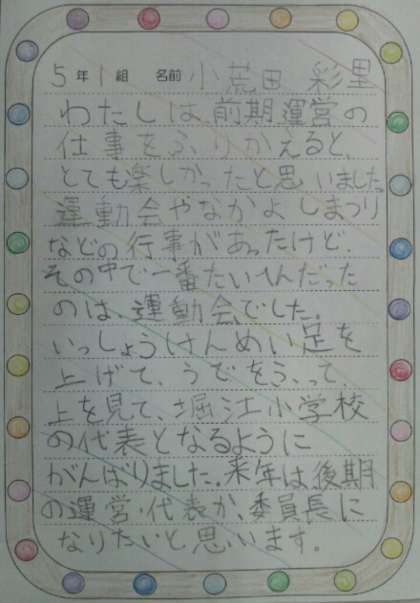 5年1組 名前 小荒田 彩里
わたしは、前期運営の
仕事をふりかえると、
とても楽しかったと思いました。
運動会やなかよしまつり
などの行事があったけど、
その中で一番たいへんだった
のは、運動会でした。
いっしょうけんめい足を
上げて、うでをふって、
上を見て、堀江小学校
の代表となるように
がんばりました。来年は後期
の運営・代表か、委員長に
なりたいと思います。